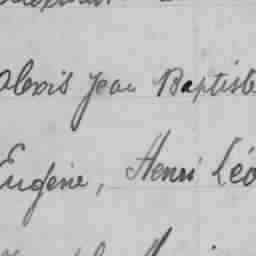 Alexis Jean Baptiste
Eugène, Henri Léo